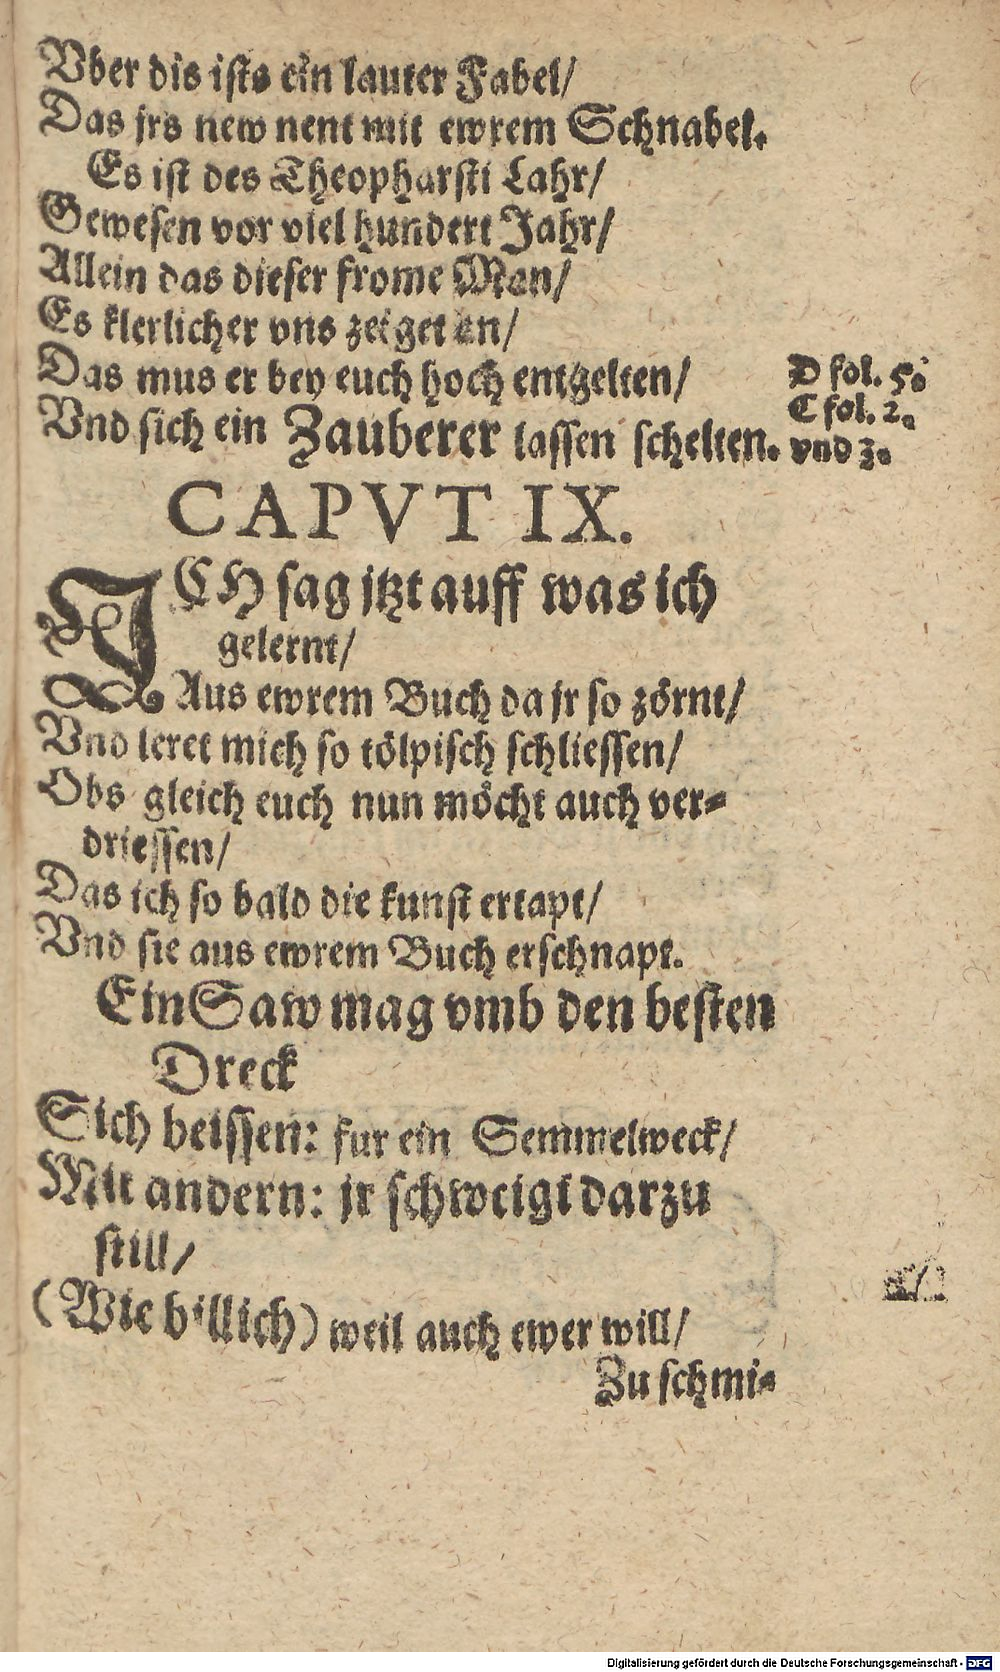 Vber dis ists ein lauter Fabel/
Das jrs new nent mit ewrem Schnabel.
Es ist des Theopharsti Lahr/
Gewesen vor viel hundert Jahr/
Allein das dieser frome Man/
Es klerlicher vns zeiget an/
Das mus er bey euch hoch entgelten/
D fol. 5.
C fol. 2.
Vnd sich ein Zauberer lassen schelten.
vnd 3.
CAPVT IX.
ICH sag jtzt auff was ich
gelernt/
Aus ewrem Buch da jr so zörnt/
Vnd leret mich so tölpisch schliessen/
Obs gleich euch nun möcht auch ver-
driessen/
Das ich so bald die kunst ertapt/
Vnd sie aus ewrem Buch erschnapt.
Ein Saw mag vmb den besten
Dreck
Sich beissen: fur ein Semmelweck/
Mit andern: jr schweigt darzu
still/
(Wie billich) weil auch ewer will/
Zu schmi-
Digitalisierung gefördert durch die Deutsche Forschungsgemeinschaft - DFG